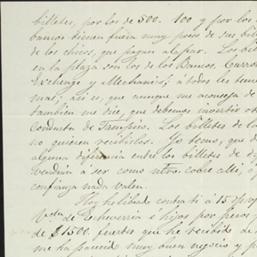 billetes, por los de 500. 100 y por los
bancos tienen fuera muy poco de sus bil
de los chicos, que pagan a la par. Los bi
en la plaza son los de los Bancos, Carro
Exchange y Mechanics, á todos les tem
mal; asi es, que aunque me aconseja d
tambien me dice, que debemos invertir
Conducta de Tampico. Los billetes de la
no quieren recibirlos. Yo temo, que d
alguna diferencia entre los billetes de
vendrán á ser como otros sobre ello, ó
confianza nada valen.
Hoy he librado contra ti á 15 d/v
Vda. de Echeverria é hijos por pesos f
de $1500. fuertes que he recibido de
me ha parecido muy buen negocio y p